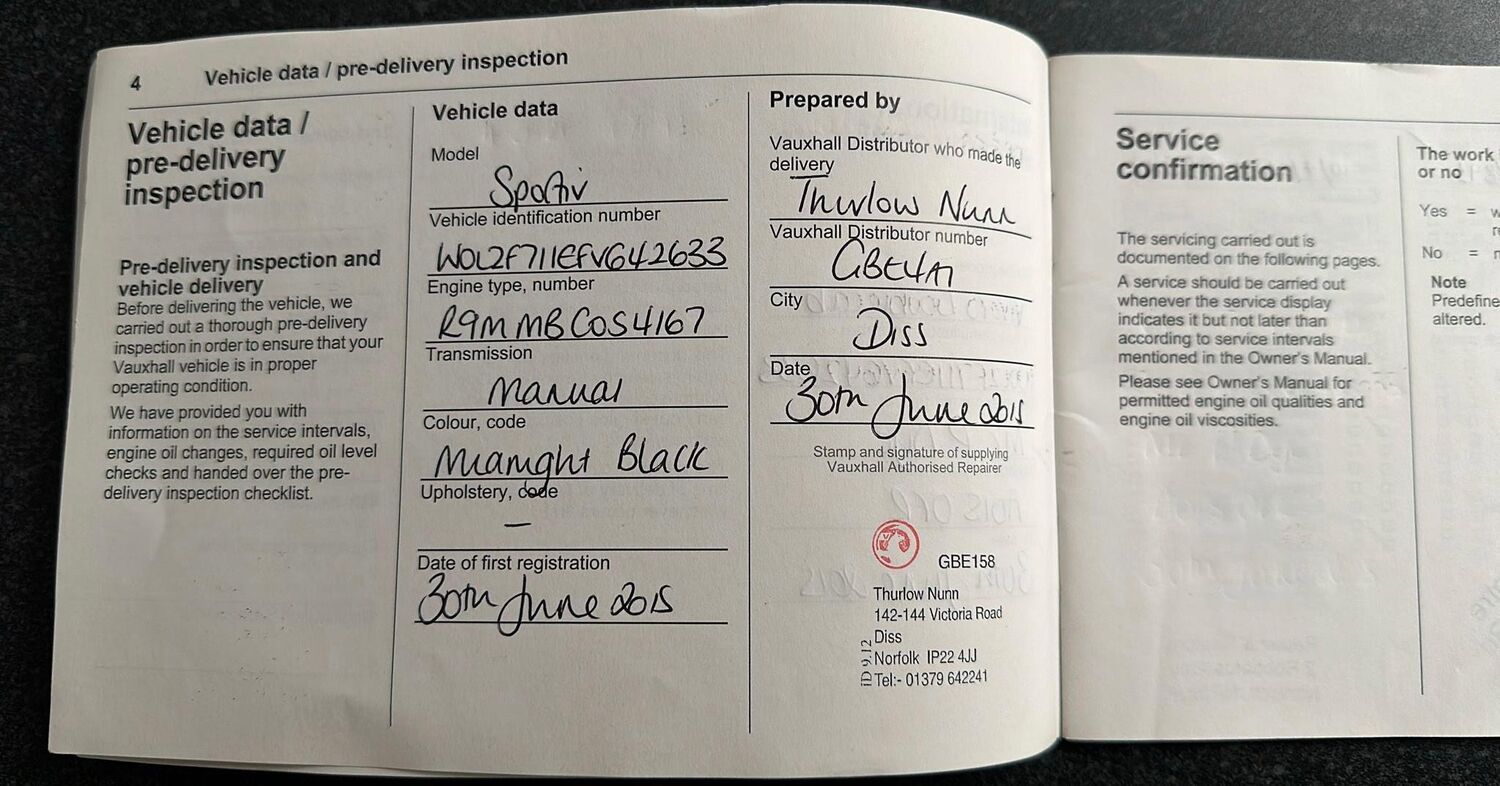 4 Vehicle data / pre-delivery inspection
Vehicle data /
pre-delivery
inspection
Pre-delivery inspection and
vehicle delivery
Before delivering the vehicle, we
carried out a thorough pre-delivery
inspection in order to ensure that your
Vauxhall vehicle is in proper
operating condition.
We have provided you with
information on the service intervals,
engine oil changes, required oil level
checks and handed over the pre-
delivery inspection checklist.
Vehicle data
Model
Sportiv
Vehicle identification number
W0L2F711EFV642633
Engine type, number
R9M MBC054167
Transmission
Manual
Colour, code
Midnight Black
Upholstery, code
–
Date of first registration
30th June 2015
Prepared by
Vauxhall Distributor who made the
delivery
Thurlow Nunn
Vauxhall Distributor number
City
Diss
Date
30th June 2015
Stamp and signature of supplying
Vauxhall Authorised Repairer
GBE158
Thurlow Nunn
142-144 Victoria Road
Diss
Norfolk IP22 4JJ
Tel:- 01379 642241
ID 9.12
Service
confirmation
The servicing carried out is
documented on the following pages.
A service should be carried out
whenever the service display
indicates it but not later than
according to service intervals
mentioned in the Owner's Manual.
Please see Owner's Manual for
permitted engine oil qualities and
engine oil viscosities.
The work
or no
Yes = w
No = n
Note
Predefine
altered.